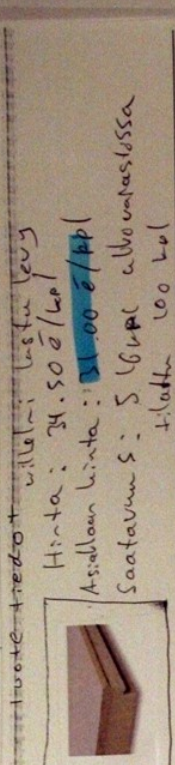 tuote tiedot
willelmi lastu levy
Hinta: 34.50 € / kpl
Asiakkaan hinta: 31.00 € / kpl
Saatavuus: 516 kpl ulkovarastossa
tilattu 100 kpl